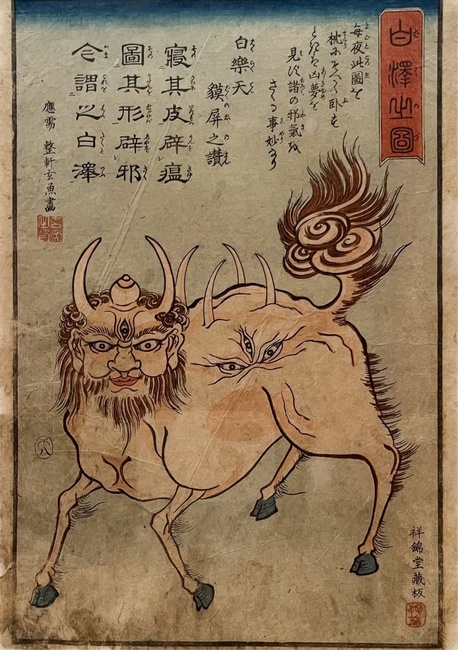 白澤之圖
毎夜此圖を
枕にそへ臥
ときは凶夢を
見ず諸の邪氣を
さくる事妙なり
白樂天
貘屏之讃
寝其皮辟瘟
圖其形辟邪
今謂之白澤
應需 整軒玄魚畫
祥錦堂藏板